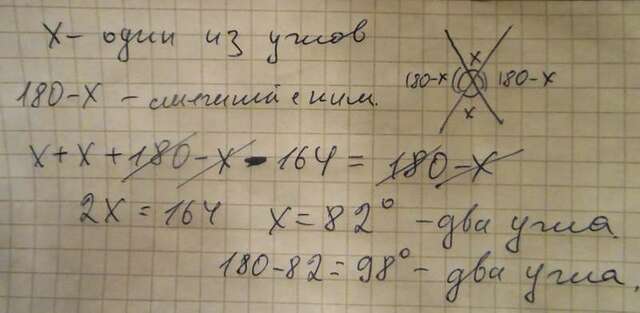 x - один из углов
180-x - смежный с ним.
x
180-x
180-x
x
x + x + 180 - x - 164 = 180 - x
2x = 164 x = 82° - два угла.
180-82 = 98° - два угла.